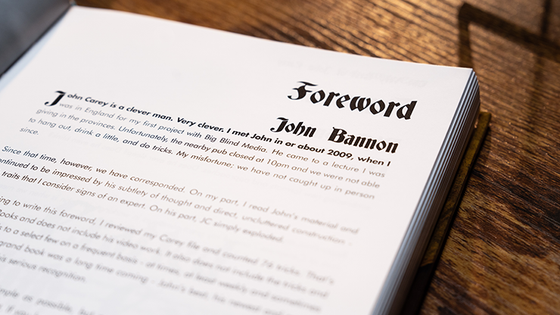 Foreword
John Bannon
John Carey is a clever man. Very clever. I met John in or about 2009, when I
was in England for my first project with Big Blind Media. He came to a lecture I was
giving in the provinces. Unfortunately, the nearby pub closed at 10pm and we were not able
to hang out, drink a little, and do tricks. My misfortune; we have not caught up in person
since.
Since that time, however, we have corresponded. On my part, I read John's material and
continued to be impressed by his subtlety of thought and direct, uncluttered construction -
traits that I consider signs of an expert. On his part, JC simply exploded.
ing to write this foreword, I reviewed my Carey file and counted 76 tricks. That's
books and does not include his video work. It also does not include the tricks and
to a select few on a frequent basis - at times, at least weekly and sometimes
grand book was a long time coming - John's best, his newest and
is serious recognition.
simple as possible, but